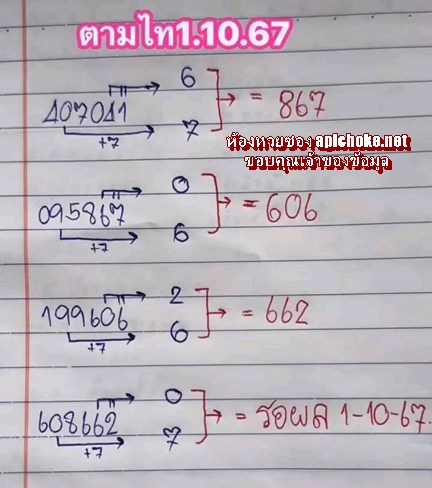 ตามไท1.10.67
6
407041 = 867
+7 7
ห้องหวยซอง apichoke.net
ขอบคุณเจ้าของข้อมูล
0
095867 = 606
+7 6
2
199606 = 662
+7 6
0
608662 = รอผล 1-10-67.
+7 7